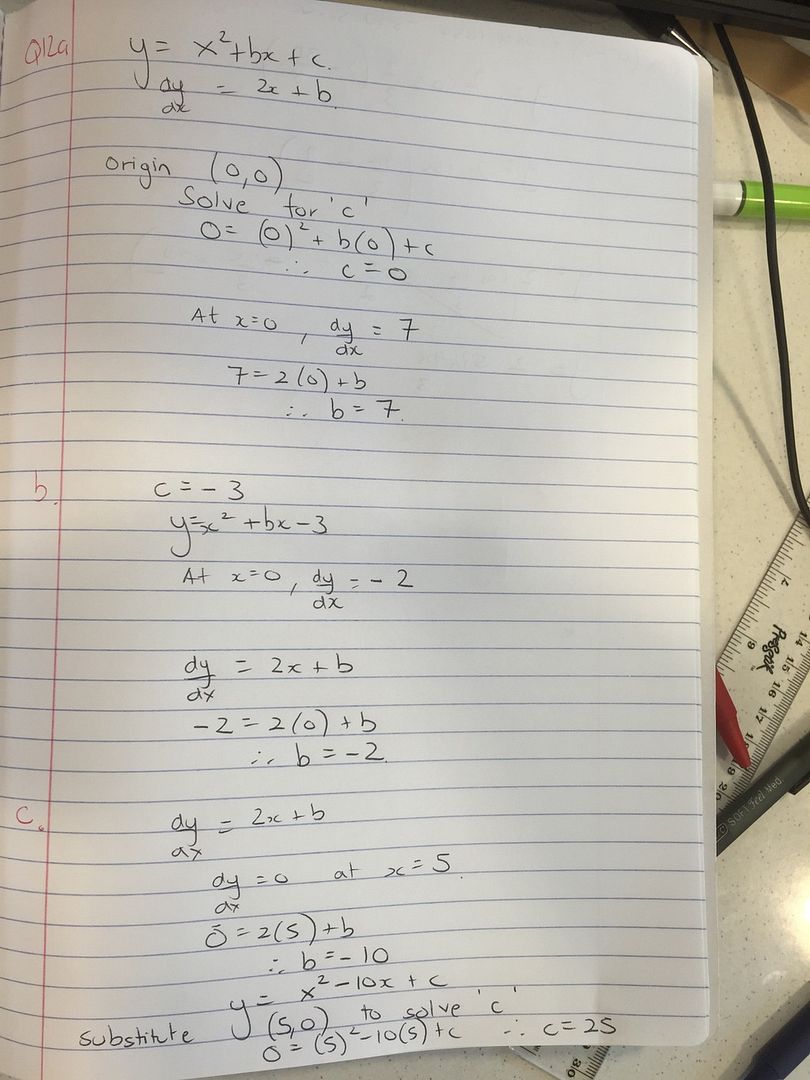 Q12a y = x²+bx + c.
dy/dx = 2x + b
origin (0,0)
Solve for 'c'
0 = (0)² + b(0) + c
∴ c = 0
At x=0, dy/dx = 7
7 = 2(0) + b
∴ b = 7.
b. c = - 3
y=x² + bx - 3
At x=0, dy/dx = - 2
dy/dx = 2x + b
- 2 = 2(0) + b
∴ b = - 2.
c. dy/dx = 2x + b
dy/dx = 0 at x = 5.
0 = 2(5) + b
∴ b = - 10
y = x² - 10x + c
substitute (5,0) to solve 'c'
0 = (5)² - 10(5) + c ∴ c = 25